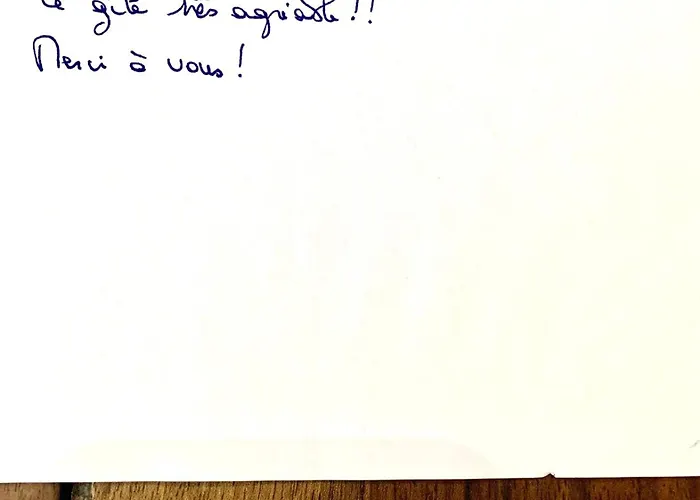 le gîte très agréable !!
Merci à vous !